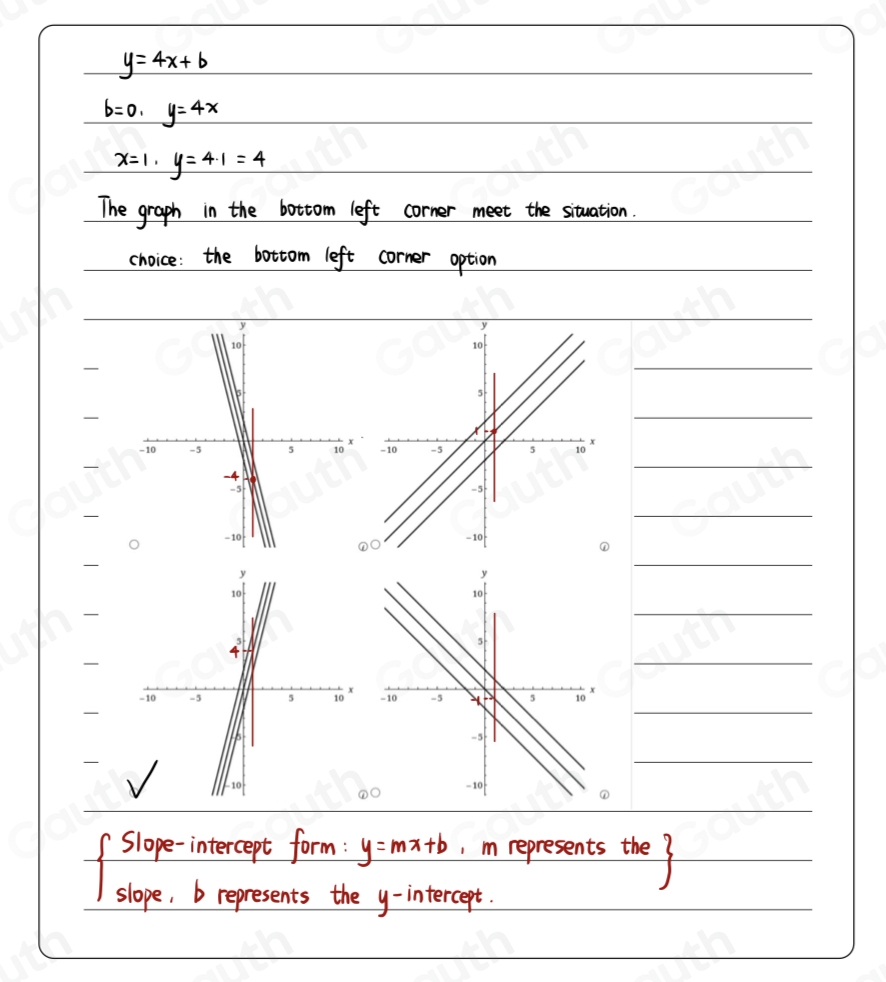 y=4x+b
b=0, y=4x
x=1, y=4·1=4
The graph in the bottom left corner meet the situation.
choice: the bottom left corner option
y
10
5
-10 -5 5 10 x
-4
-5
-10
y
10
5
1
-10 -5 5 10 x
-5
-10
y
10
5
4
-10 -5 5 10 x
-5
-10
y
10
5
-10 -5 5 10 x
-1
-5
-10
Slope-intercept form: y=mx+b, m represents the
slope, b represents the y-intercept.
Gauth